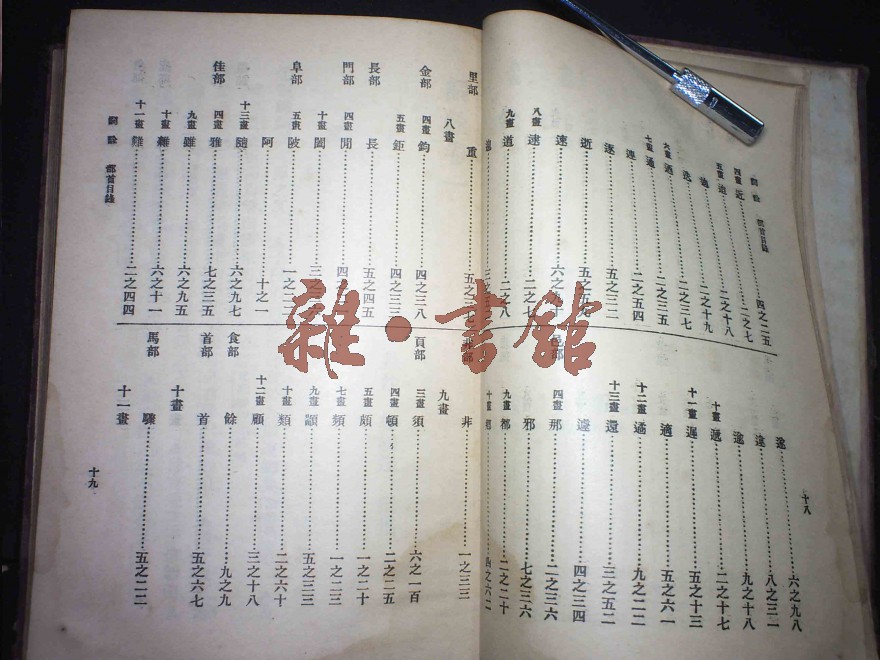 詞詮 部首目錄
四畫 近……四之二五
五畫 迫……二之七
迪……二之十八
迭……二之十九
六畫 迺……二之三七
七畫 通……二之三五
連……二之五四
逐……五之三二
逝……五之五九
速……六之
八畫 逮……二之七
九畫 道……二之八
六之九八
違……八之三一
九之十八
十畫 遞……二之十七
十一畫 遲……五之十三
適……五之六一
十二畫 遹……九之二二
十三畫 還……三之五二
遽……四之三四
邑部
四畫 那……二之三六
邪……七之三六
九畫 都……二之二十
十畫 鄉……四之六二
十八
里部
重……五之
八畫
金部
四畫 鈞……四之三八
五畫 鉅……四之三三
長部
長……五之四五
門部
四畫 閒……四之
十畫 闔……三之
阜部
五畫 陂……一之二
阿……十之一
十三畫 隨……六之九七
隹部
四畫 雅……七之三五
九畫 雖……六之九五
十畫 離……六之十一
十一畫 難……二之四四
詞詮 部首目錄
非……一之三三
九畫
頁部
三畫 須……六之一百
四畫 頓……二之二五
五畫 頗……一之二十
七畫 頻……一之二三
九畫 顓……五之三三
十畫 類……二之六十
十二畫 顧……三之十八
食部
餘……九之九
首部
首……五之六七
十畫
馬部
驟……五之二二
十一畫
十九
雜·書館